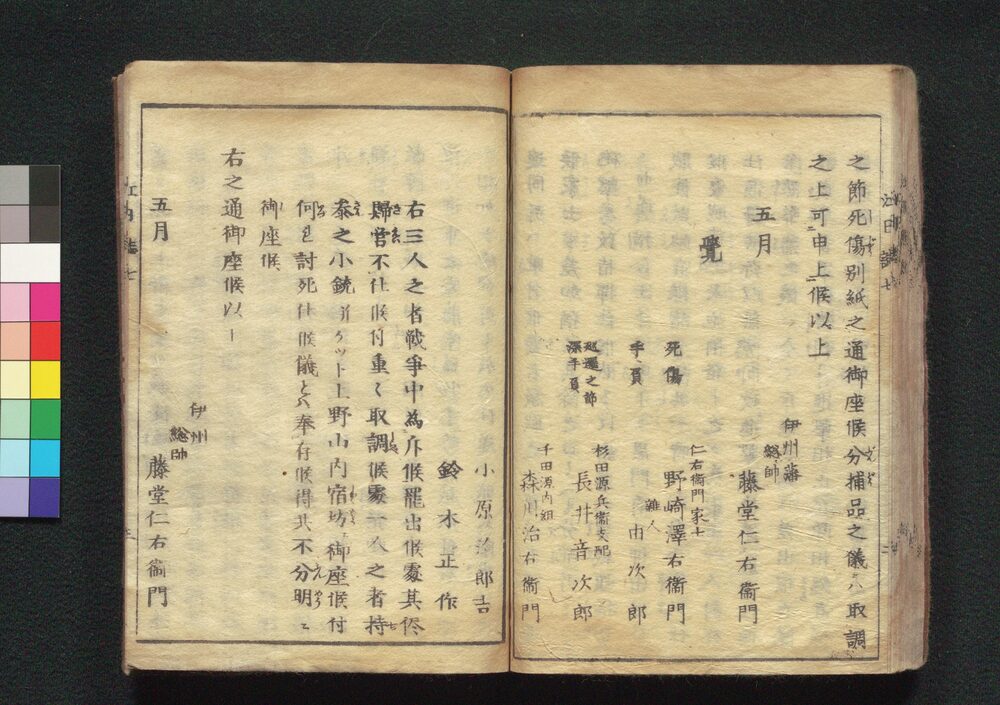 之節死傷別紙之通御座候分捕品之儀ハ取調
之上可申上候以上
五月
伊州藩
総帥
藤堂仁右衞門
覺
死傷
仁右衞門家士
野崎澤右衞門
手負
雜人
由次郎
巡邏之節
深手負
杉田源兵衞支配
長井音次郎
千田源内組
森川治右衞門
小原治郎吉
鈴木正作
右三人之者戰爭中為斥候罷出候處其侭
歸営不仕候付重々取調候處一人之者持
参之小銃
上野山内宿坊
御座候付
何レ討死仕候儀とハ奉存候得共不分明ニ
御座候
右之通御座候以上
五月
伊州
総帥
藤堂仁右衞門